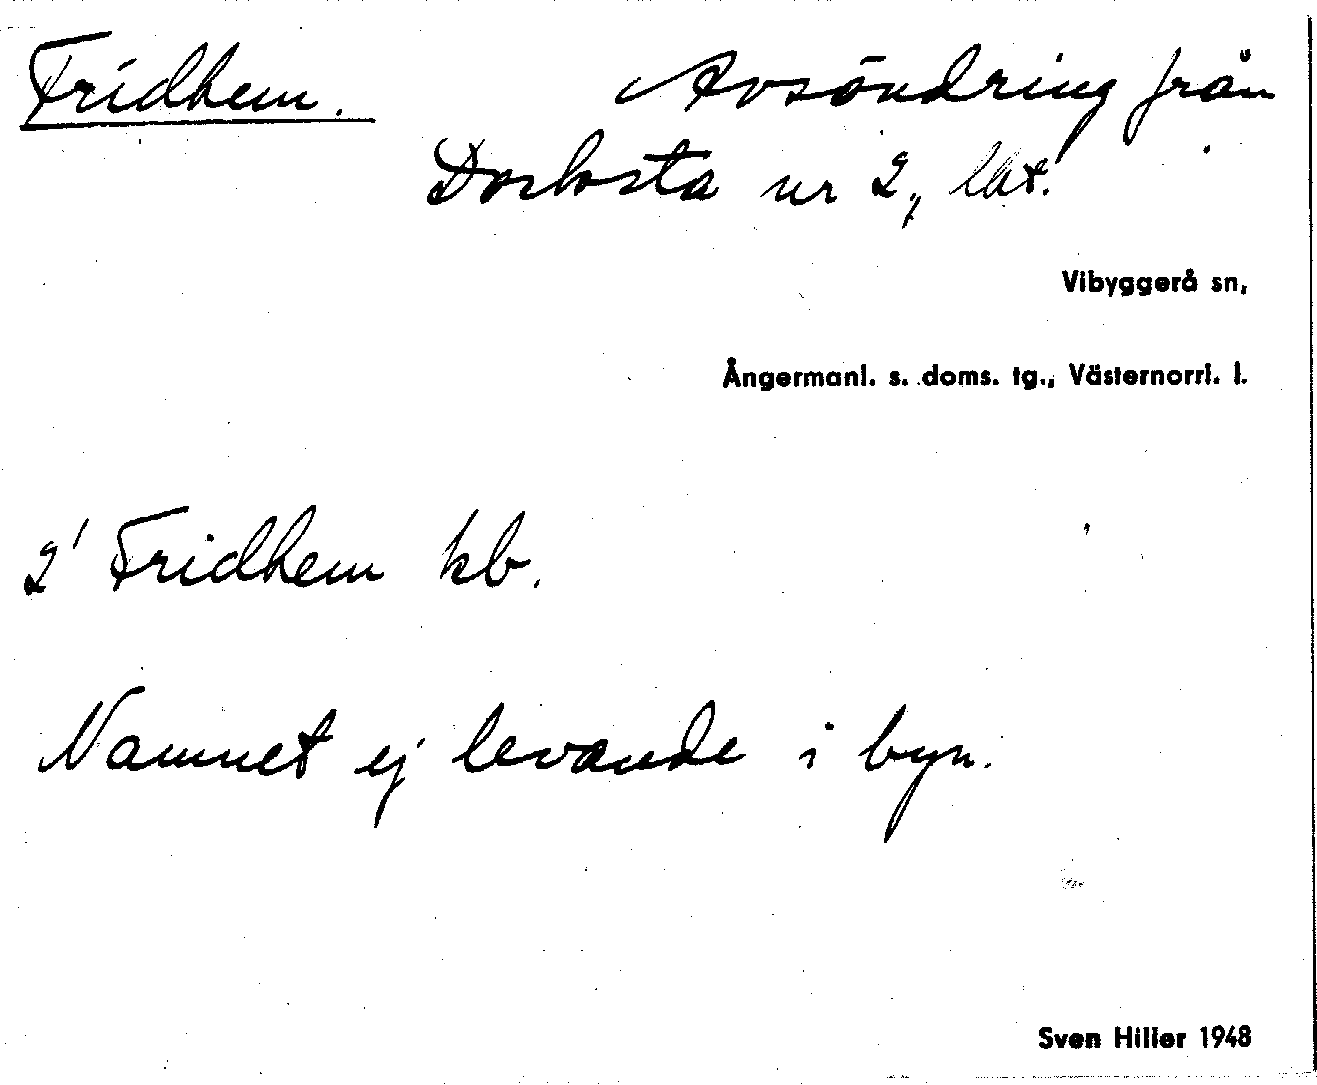 Fridhem. Avsöndring från
Dorbsta nr 2, lht.
Vibyggerå sn,
Ångermanl. s. doms. tg., Västernorrl. l.
2' Fridhem kb.
Namnet ej levande i byn.
Sven Hiller 1948